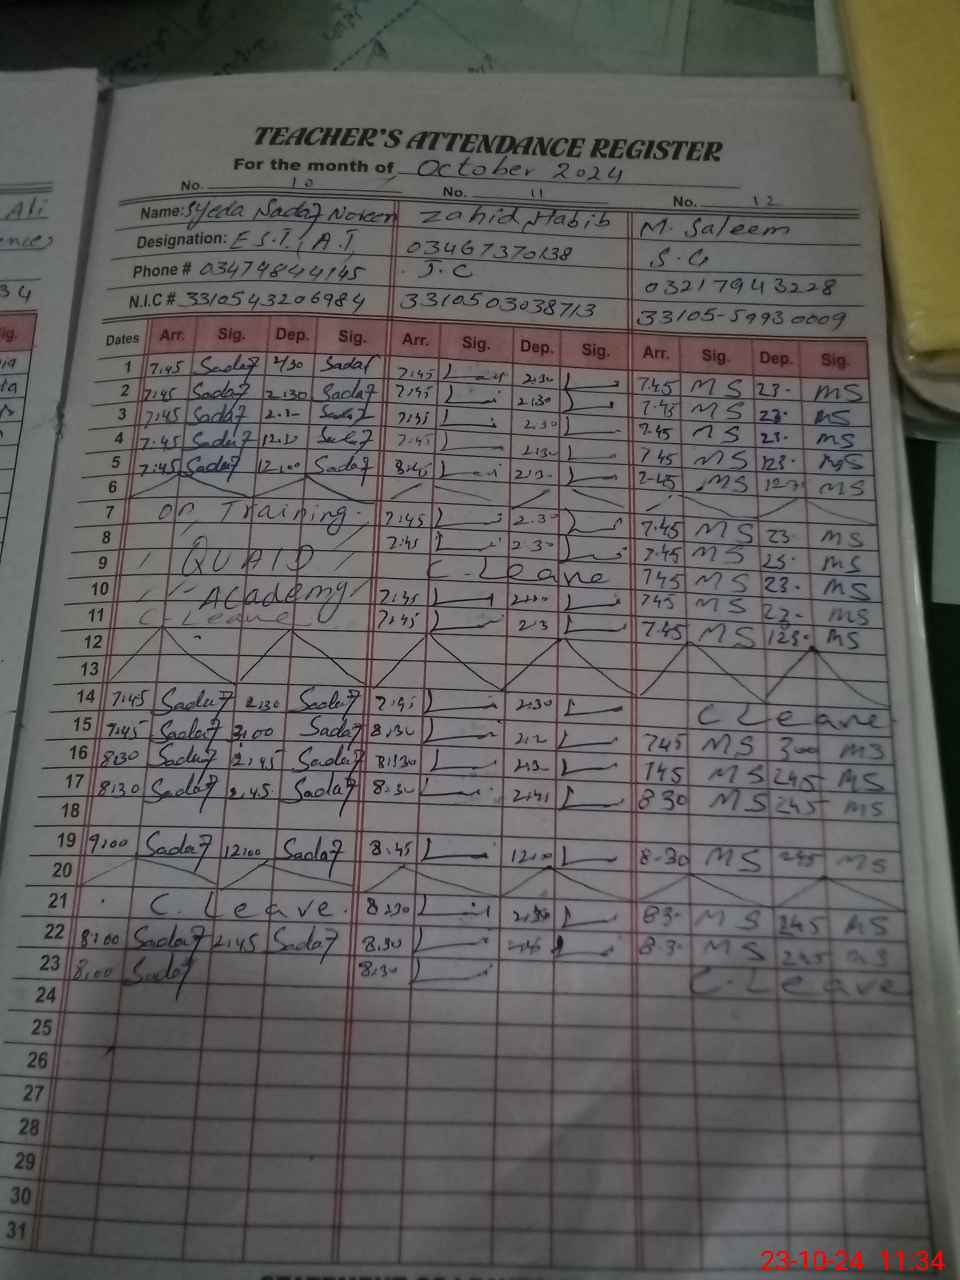 TEACHER'S ATTENDANCE REGISTER
For the month of October 2024
No. 10 No. 11 No. 12
Name: Syeda Sadaf Noreen Zahid Habib M. Saleem
Designation: E.S.T, A.T, 03467370138 S.G
Phone # 03479844145 J.C 03217943228
N.I.C # 3310543206984 3310503038713 33105-59930009
Dates Arr. Sig. Dep. Sig. Arr. Sig. Dep. Sig. Arr. Sig. Dep. Sig.
1 7:45 Sadaf 2/30 Sadaf 7:45 2:30 7.45 MS 23. MS
2 7:45 Sadaf 2:30 Sadaf 7:45 2:30 7.45 MS 23. MS
3 7:45 Sadaf Sadaf 7:45 2:30 7.45 MS 23. MS
4 7:45 Sadaf Sadaf 7:45 2:30 7.45 MS 123. MS
5 7:45 Sadaf 12:00 Sadaf 8:45 7.45 MS MS
6
7 On Training 7:45 2:30 7.45 MS 23. MS
8 7:45 2:30 7.45 MS 23. MS
9 QUAID C. Leave 745 MS 23. MS
10 Academy 7:45 745 MS 23. MS
11 C. Leave 7:45 2:3 7.45 MS 123. MS
12
13
14 7:45 Sadaf 2:30 Sadaf 7:45 2:30 C Leave
15 7:45 Sadaf 3:00 Sadaf 8:30 745 MS 300 MS
16 8:30 Sadaf 2:45 Sadaf 8:30 745 MS 245 MS
17 8:30 Sadaf 2:45 Sadaf 8:30 2:45 830 MS 245 MS
18
19 9:00 Sadaf 12:00 Sadaf 8:45 12:00 8-30 MS 245 MS
20
21 C. Leave. 8:30 2:30 83. MS 245 MS
22 8:00 Sadaf 2:45 Sadaf 8:30 2:45 8.3. MS 245 MS
23 8:00 Sadaf 8:30 C. Leave
24
25
26
27
28
29
30
31
23-10-24 11:34